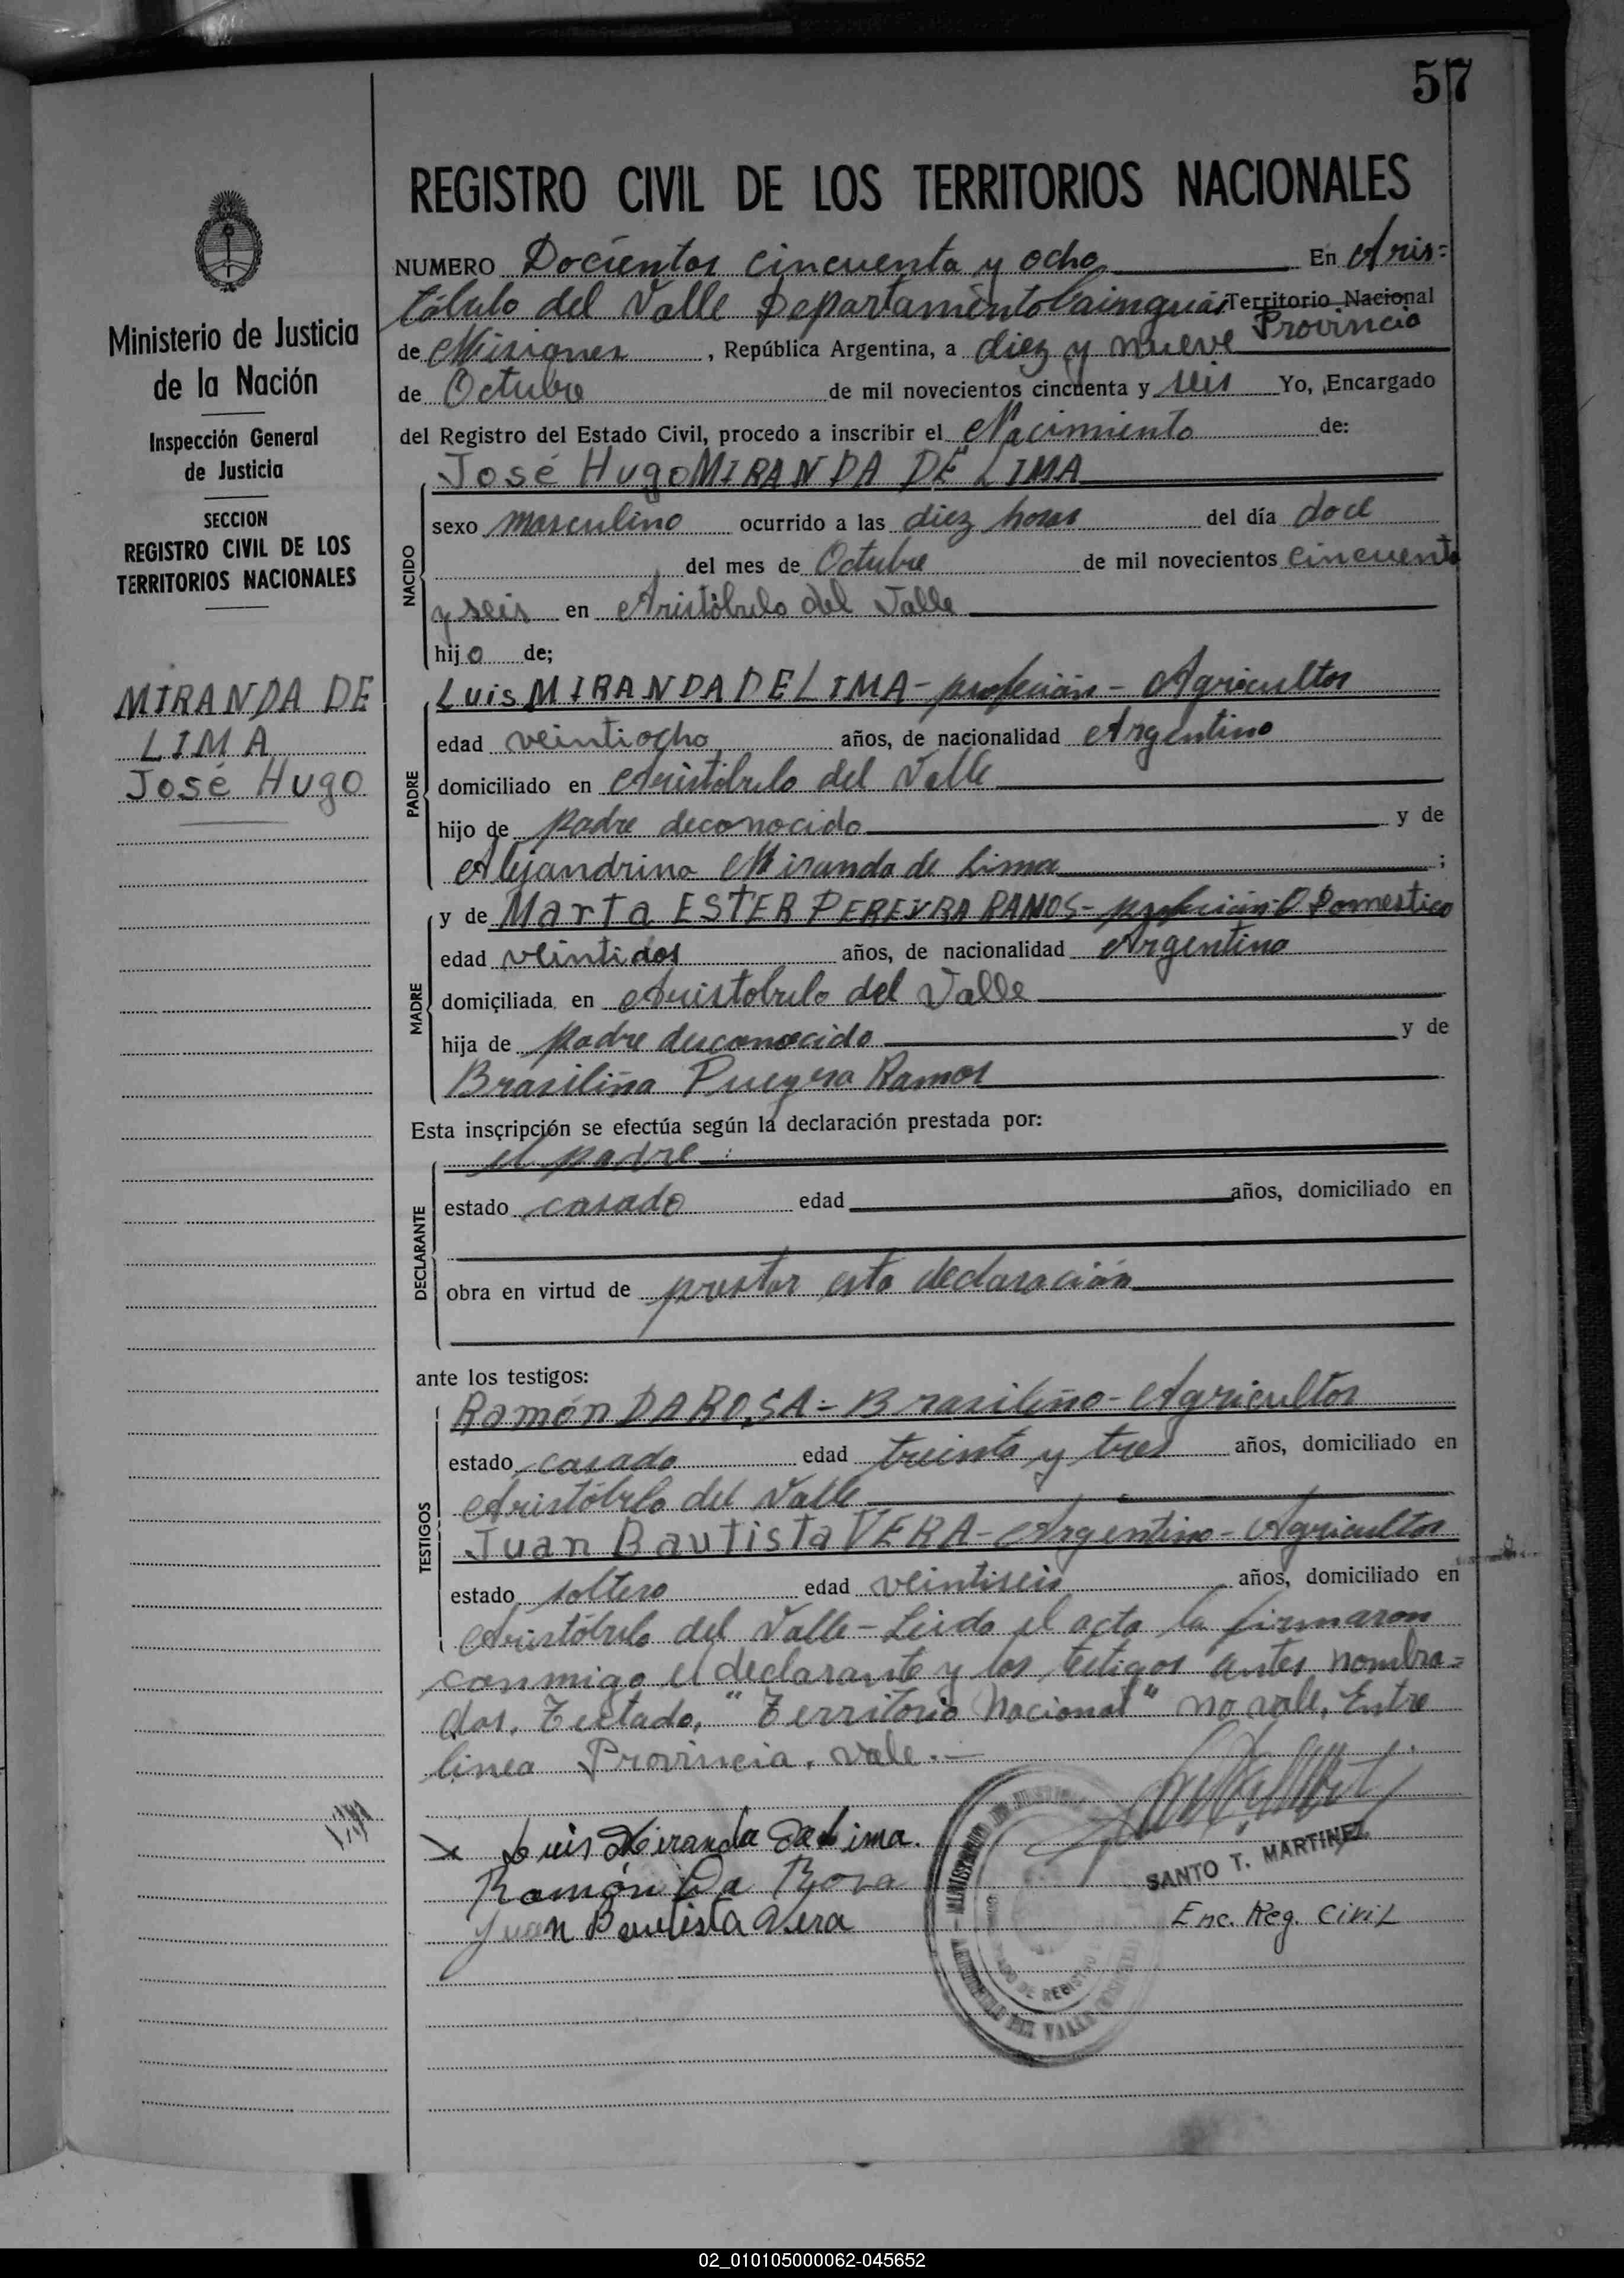 57
REGISTRO CIVIL DE LOS TERRITORIOS NACIONALES
NUMERO Docientos cincuenta y ocho En Aris=
tóbulo del Valle Departamento Cainguás Territorio Nacional
Provincia
de Misiones, República Argentina, a diez y nueve
de Octubre de mil novecientos cincuenta y seis Yo, Encargado
del Registro del Estado Civil, procedo a inscribir el Nacimiento de:
José Hugo MIRANDA DE LIMA
NACIDO
sexo masculino ocurrido a las diez horas del día doce
del mes de Octubre de mil novecientos cincuenta
y seis en Aristóbulo del Valle
hijo de;
PADRE
Luis MIRANDA DE LIMA - profesión - Agricultor
edad veintiocho años, de nacionalidad Argentino
domiciliado en Aristóbulo del Valle
hijo de padre deconocido y de
Alejandrina Miranda de Lima;
MADRE
y de Marta ESTER PEREYRA RAMOS - profesión Q. Domestico
edad veintidos años, de nacionalidad Argentina
domiciliada en Aristobulo del Valle
hija de padre desconocido y de
Brasiliña Pereyra Ramos
Esta inscripción se efectúa según la declaración prestada por:
DECLARANTE
el padre
estado casado edad años, domiciliado en
obra en virtud de prestar esta declaración
ante los testigos:
TESTIGOS
Ramón DA ROSA - Brasileño - Agricultor
estado casado edad treinta y tres años, domiciliado en
Aristóbulo del Valle
Juan Bautista VERA - Argentino - Agricultor
estado soltero edad veintiseis años, domiciliado en
Aristóbulo del Valle - Leida el acta la firmaron
conmigo el declarante y los testigos antes nombra=
dos. Testado, "Territorio Nacional" no vale, Entre
linea Provincia. vale.-
x Luis Miranda De Lima.
Ramón Da Rosa
Juan Bautista Vera
SANTO T. MARTINEZ
Enc. Reg. Civil
Ministerio de Justicia
de la Nación
Inspección General
de Justicia
SECCION
REGISTRO CIVIL DE LOS
TERRITORIOS NACIONALES
MIRANDA DE
LIMA
José Hugo
02_010105000062-045652